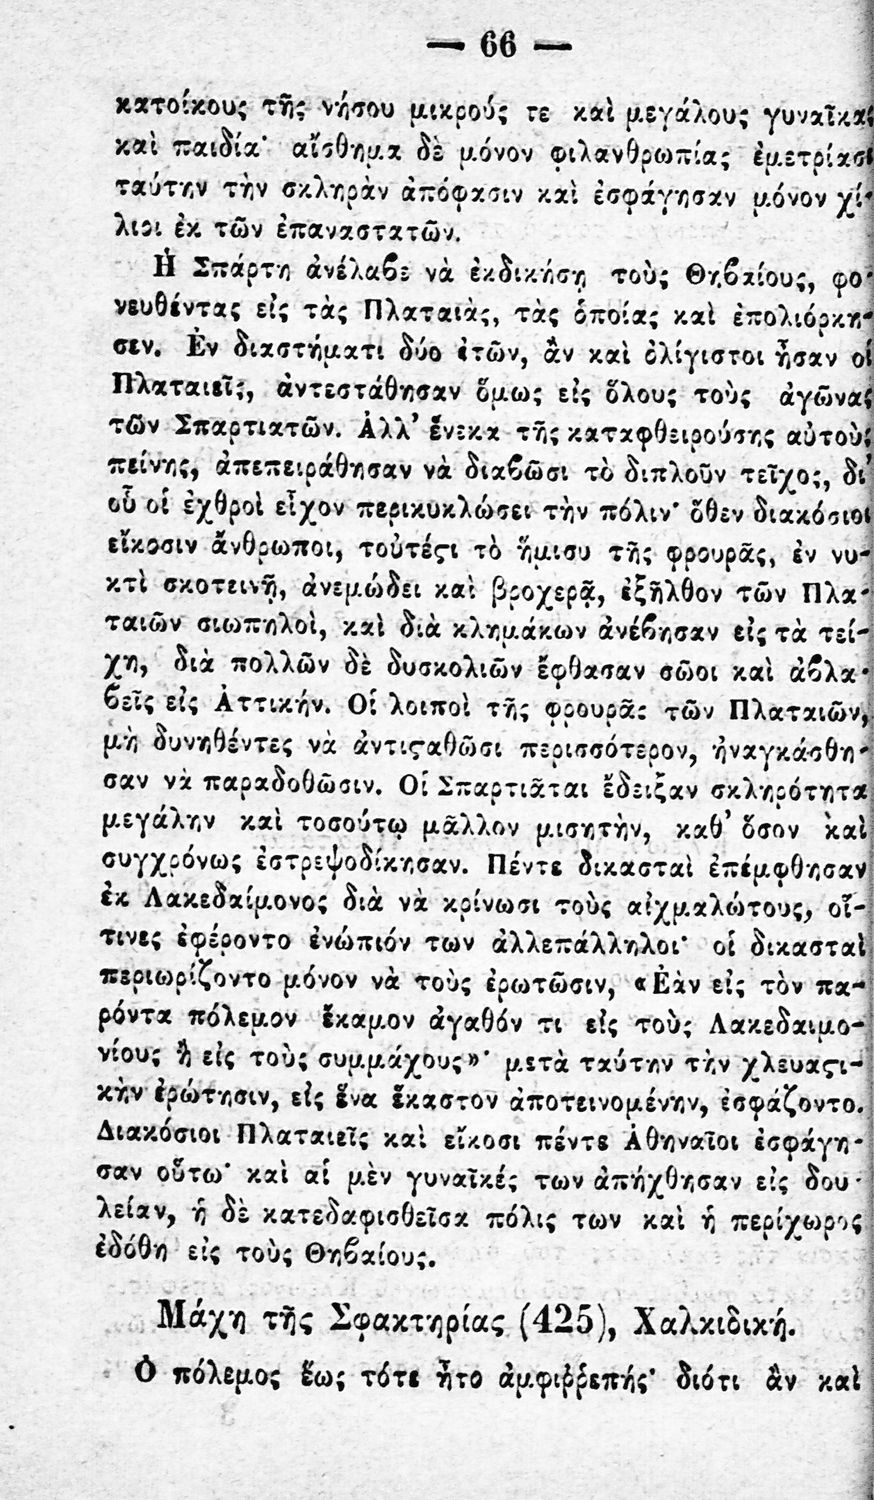 — 66 —
κατοίκους τῆς νήσου μικρούς τε καὶ μεγάλους γυναῖκας
καὶ παιδία· αἴσθημα δὲ μόνον φιλανθρωπίας ἐμετρίασε
ταύτην τὴν σκληρὰν ἀπόφασιν καὶ ἐσφάγησαν μόνον χί-
λιοι ἐκ τῶν ἐπαναστατῶν.
Ἡ Σπάρτη ἀνέλαϐε νὰ ἐκδικήσῃ τοὺς Θηϐαίους, φο-
νευθέντας εἰς τὰς Πλαταιὰς, τὰς ὁποίας καὶ ἐπολιόρκη-
σεν. Ἐν διαστήματι δύο ἐτῶν, ἂν καὶ ὀλίγιστοι ἦσαν οἱ
Πλαταιεῖς, ἀντεστάθησαν ὅμως εἰς ὅλους τοὺς ἀγῶνας
τῶν Σπαρτιατῶν. Ἀλλ’ ἕνεκα τῆς καταφθειρούσης αὐτοὺς
πείνης, ἀπεπειράθησαν νὰ διαϐῶσι τὸ διπλοῦν τεῖχος, δι’
οὗ οἱ ἐχθροὶ εἶχον περικυκλώσει τὴν πόλιν· ὅθεν διακόσιοι
εἴκοσιν ἄνθρωποι, τοὐτέϛι τὸ ἥμισυ τῆς φρουρᾶς, ἐν νυ-
κτὶ σκοτεινῇ, ἀνεμώδει καὶ βροχερᾷ, ἐξῆλθον τῶν Πλα-
ταιῶν σιωπηλοὶ, καὶ διὰ κλημάκων ἀνέϐησαν εἰς τὰ τεί-
χη, διὰ πολλῶν δὲ δυσκολιῶν ἔφθασαν σῶοι καὶ ἀϐλα-
ϐεῖς εἰς Ἀττικήν. Οἱ λοιποὶ τῆς φρουρᾶς τῶν Πλαταιῶν,
μὴ δυνηθέντες νὰ ἀντιϛαθῶσι περισσότερον, ἠναγκάσθη-
σαν νὰ παραδοθῶσιν. Οἱ Σπαρτιᾶται ἔδειξαν σκληρότητα
μεγάλην καὶ τοσούτῳ μᾶλλον μισητὴν, καθ’ ὅσον καὶ
συγχρόνως ἐστρεψοδίκησαν. Πέντε δικασταὶ ἐπέμφθησαν
ἐκ Λακεδαίμονος διὰ νὰ κρίνωσι τοὺς αἰχμαλώτους, οἵ-
τινες ἐφέροντο ἐνώπιόν των ἀλλεπάλληλοι· οἱ δικασταὶ
περιωρίζοντο μόνον νὰ τοὺς ἐρωτῶσιν, «Ἐὰν εἰς τὸν πα-
ρόντα πόλεμον ἔκαμον ἀγαθόν τι εἰς τοὺς Λακεδαιμο-
νίους ἢ εἰς τοὺς συμμάχους»· μετὰ ταύτην τὴν χλευαϛι-
κὴν ἐρώτησιν, εἰς ἕνα ἕκαστον ἀποτεινομένην, ἐσφάζοντο.
Διακόσιοι Πλαταιεῖς καὶ εἴκοσι πέντε Ἀθηναῖοι ἐσφάγη-
σαν οὕτω· καὶ αἱ μὲν γυναῖκές των ἀπήχθησαν εἰς δου-
λείαν, ἡ δὲ κατεδαφισθεῖσα πόλις των καὶ ἡ περίχωρος
ἐδόθη εἰς τοὺς Θηϐαίους.
Μάχη τῆς Σφακτηρίας (425), Χαλκιδική.
Ὁ πόλεμος ἕως τότε ἦτο ἀμφιῤῥεπής· διότι ἂν καὶ